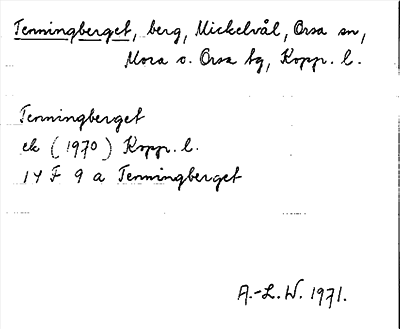 Tenningberget, berg, Mickelvål, Orsa sn,
Mora o. Orsa tg, Kopp. l.
Tenningberget
ek (1970) Kopp. l.
14 F 9 a Tenningberget
A.-L.W. 1971.